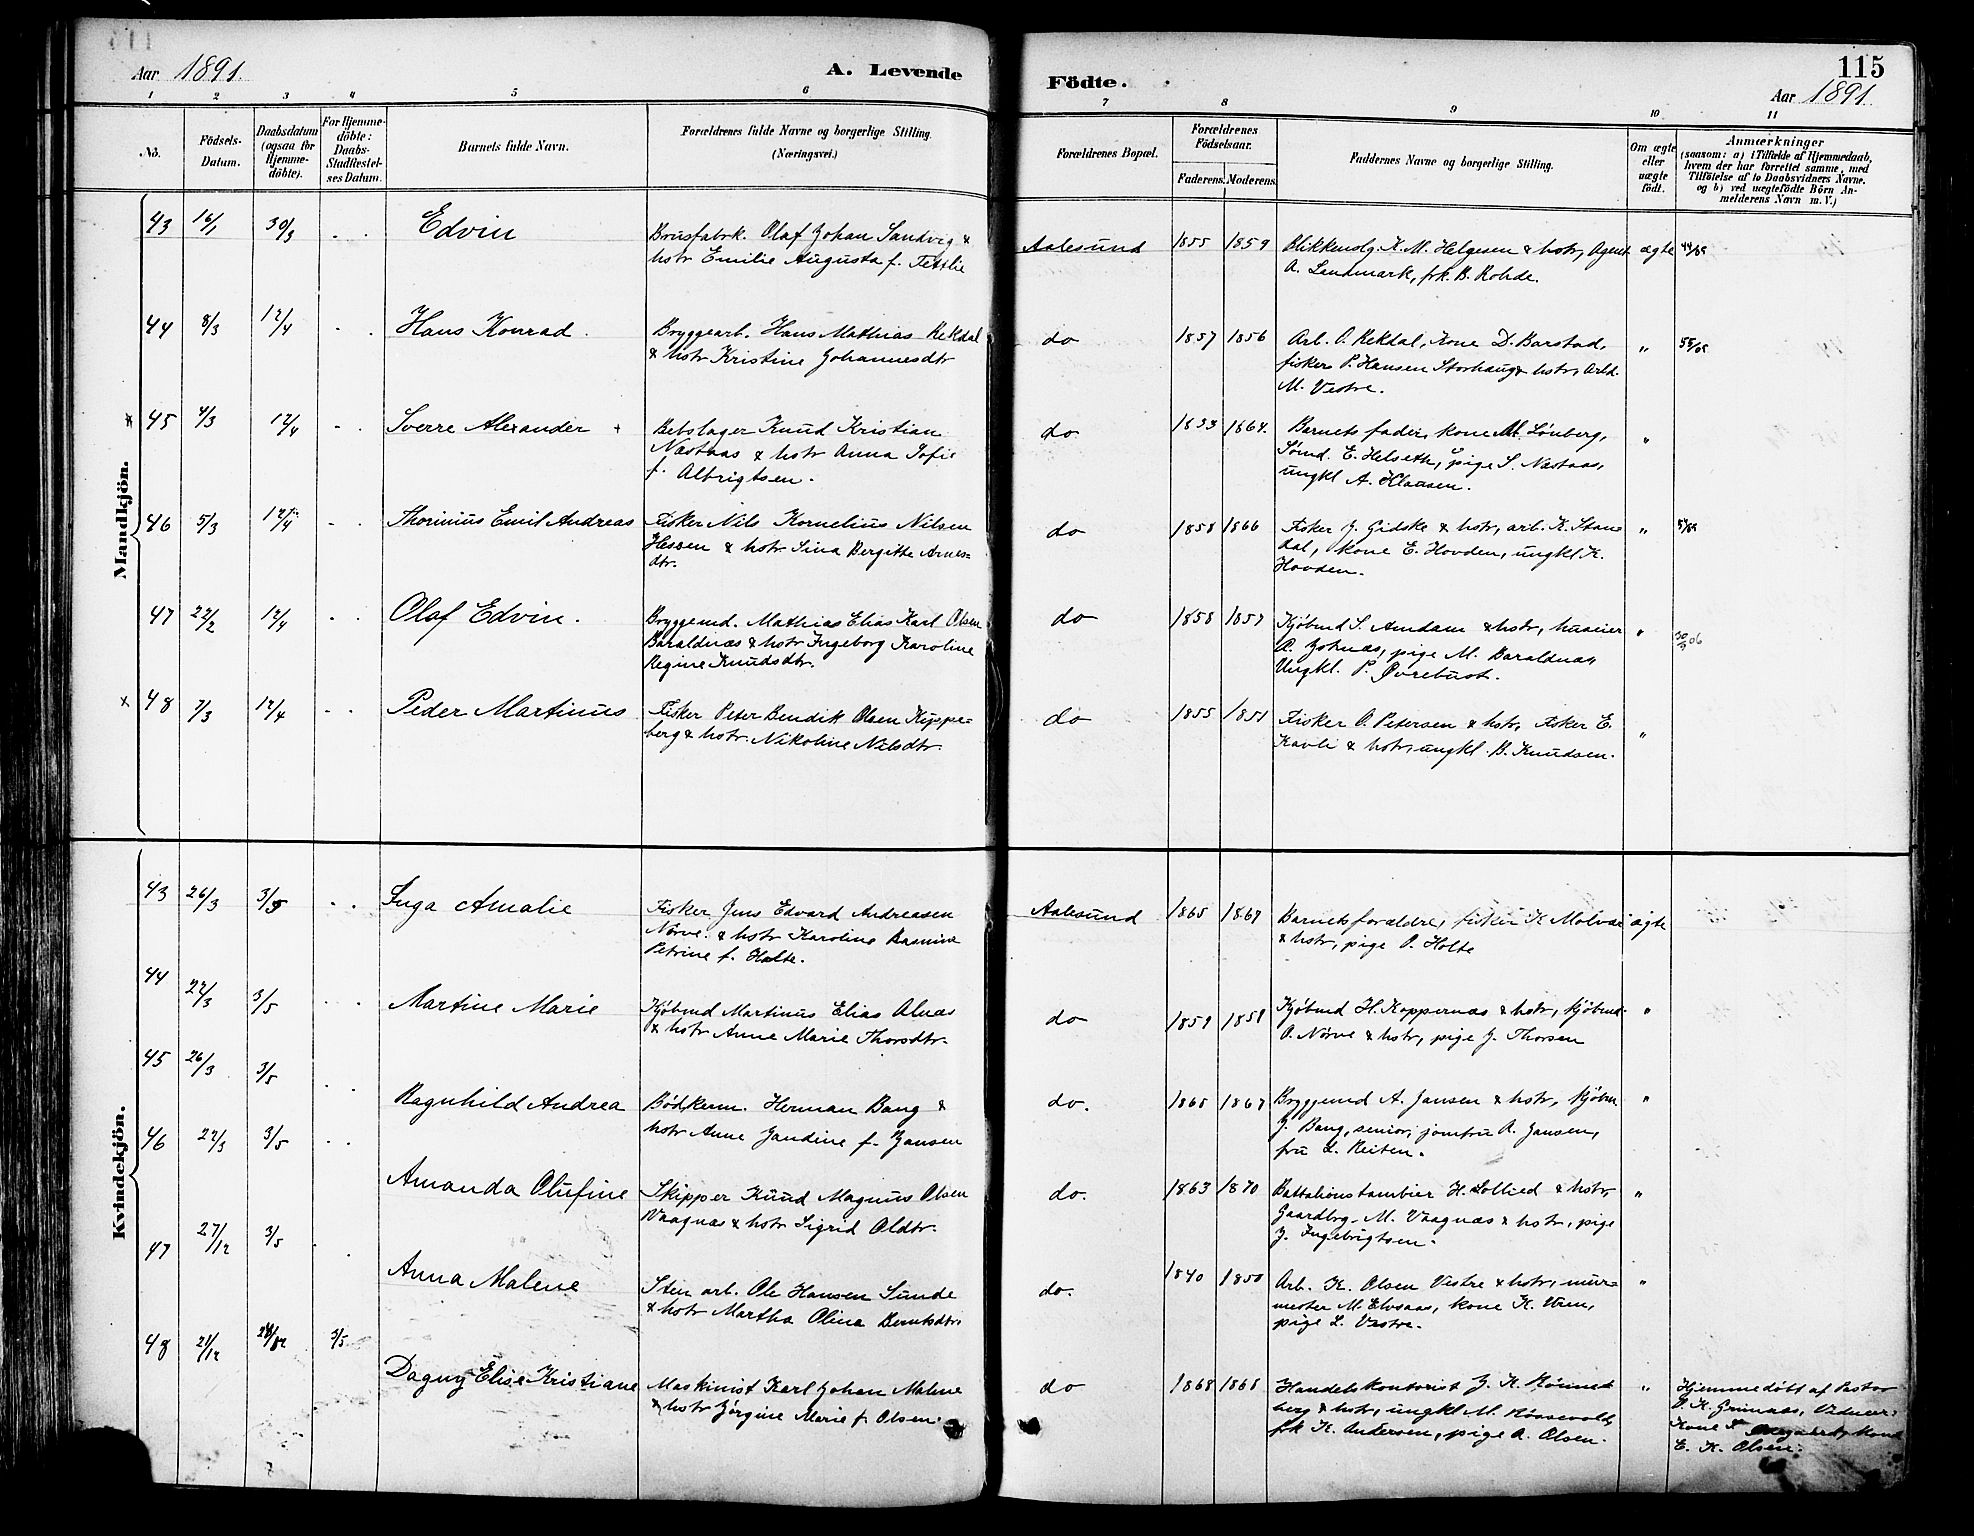 Aar 1891.
A. Levende
Födte.
115
Aar 1891.
1 2 3 4 5 6 7 8 9 10 11
No.
Födsels-
Datum.
Daabsdatum
(ogsaa for
Hjemme-
döbte).
For Hjemme-
döbte:
Daabs-
Stadfæstel-
ses Datum.
Barnets fulde Navn.
Forældrenes fulde Navne og borgerlige Stilling.
(Næringsvei.)
Forældrenes Bopæl.
Forældrenes
Födselsaar.
Faderens. Moderens.
Faddernes Navne og borgerlige Stilling.
Om ægte
eller
uægte
födt.
Anmærkninger
(saasom: a) i Tilfælde af Hjemmedaab,
hvem der har forrettet samme, med
Tilföielse af to Daabsvidners Navne.
og b) ved uægtefödte Börn An-
melderens Navn m. V.)
Mandkjön.
43 16/1 30/3 Edvin
Brusfabrk. Olaf Johan Sandvig &
hstr Emilie Augusta f. Tettlie
Aalesund 1855 1859
Blikkenslg. K. M. Helgesen & hstr, Agent
A. Lendmark, frk. B. Rohde.
ægte
44 8/3 12/4 Hans Konrad.
Bryggearb. Hans Mathias Rekdal
& hstr Kristine Johannesdtr
do 1857 1856
Arb. O. Rekdal, Kone D. Barstad,
fisker P. Hansen Storhaug & hstr, Arb.
M. Vestre.
"
x 45 4/3 12/4 Sverre Alexander +
Bebslager Knud Kristian
Næstaas & hstr Anna Sofie
f. Albrigtsen.
do 1864.
Barnets fader, kone M. Lönberg,
Sömd. E. Helseth, pige S. Næstaas,
ungkl A. Klausen.
"
46 5/3 12/4 Thorinius Emil Andreas
Fisker Nils Kornelius Nilsen
Hessen & hstr Sina Bergitte Arnes-
dtr.
do 1858 1866
Fisker J. Gidske & hstr, arb. K. Stan-
dal, kone E. Hovden, ungkl. K.
Hovden.
"
47 22/2 12/4 Olaf Edvin.
Bryggemd. Mathias Elias Karl Olsen
Baraldnæs & hstr Ingeborg Karoline
Regine Knudsdtr.
do 1858 1857
Kjöbmd S. Amdam & hstr, huseier
A. Johnæs, pige M. Baraldnæs,
Ungkl. P. Øvrebust.
"
x 48 7/3 12/4 Peder Martinus
Fisker Peter Bendik Olsen Kyppe-
berg & hstr Nikoline Nilsdtr.
do 1855 1851
Fisker O. Petersen & hstr, Fisker E.
Kavli & hstr, ungkl. B. Knudsen.
"
Kvindekjön.
43 26/3 3/5 Inga Amalie
Fisker Jens Edvard Andreasen
Nörve & hstr Karoline Rasmine
Petrine f. Holte.
Aalesund 1865 1867
Barnets forældre, fisker K Molvær
& hstr, pige O. Holte
ægte
44 22/3 3/5 Martine Marie
Kjöbmd Martinus Elias Alnæs
& hstr Anne Marie Thorsdtr.
do 1859 1858
Kjöbmd H. Koppernæs & hstr, kjöbmd.
O. Nörve & hstr, pige J. Thorsen
"
45 26/3 3/5 Ragnhild Andrea
Bödkerm. Herman Bang &
hstr Anne Jandine f. Jansen
do. 1865 1867
Bryggemd A. Jansen & hstr, kjöbm
J. Bang, senior, jomfru A. Jansen,
fru L. Reiten.
"
46 22/3 3/5 Amanda Olufine
Skipper Knud Magnus Olsen
Vaagnæs & hstr Sigrid Oldtr.
do. 1863 1870
Battalionstambur H. Sollied & hstr,
Gaardbrg. M. Vaagnæs & hstr, pige
J. Ingebrigtsen.
"
47 27/12 3/5 Anna Malene
Sten arb. Ole Hansen Sunde
& hstr Martha Olina Berntsdtr.
do. 1840 1850
Arb. K. Olsen Vestre & hstr, mur-
mester M. Elvsaas, kone K. Vren,
pige L. Vestre.
"
48 21/12 3/5 Dagny Elise Kristiane
Maskinist Karl Johan Malme
& hstr Jörgine Marie f. Olsen.
do 1868 1868
Handelskontorist J. K. Rönne-
berg & hstr, ungkl M. Rössevold,
frk K. Andersen, pige A. Olsen.
"
Hjemmedöbt af Pastor
O. K. Grimnæs, Vidner:
Kone
E. K. Olsen.